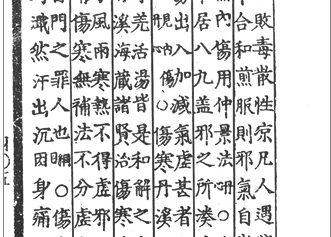 敗毒散性凉凡人遇
合和煎服則邪氣自
內傷用仲景法○
居八九盖邪之所湊
出入加減氣虛甚者
傷○傷丹溪
羌活湯皆是和解之
溪海藏諸賢治傷寒
風雨寒熱不得虛邪
傷寒無補法不分虛
門之罪人也○傷
濈然汗出沉困身痛